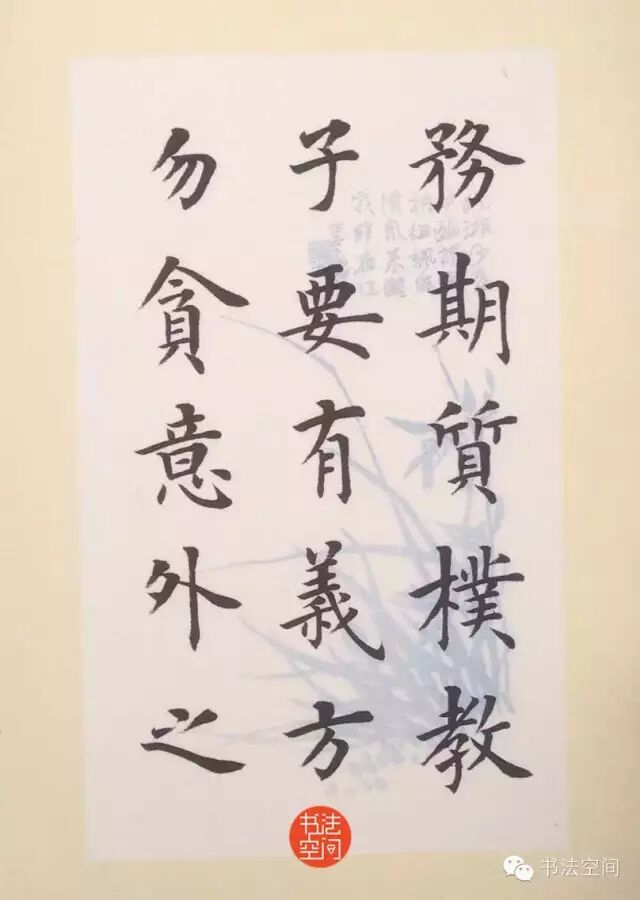 務期質樸教
子要有義方
勿貪意外之
书法空间
书法空间